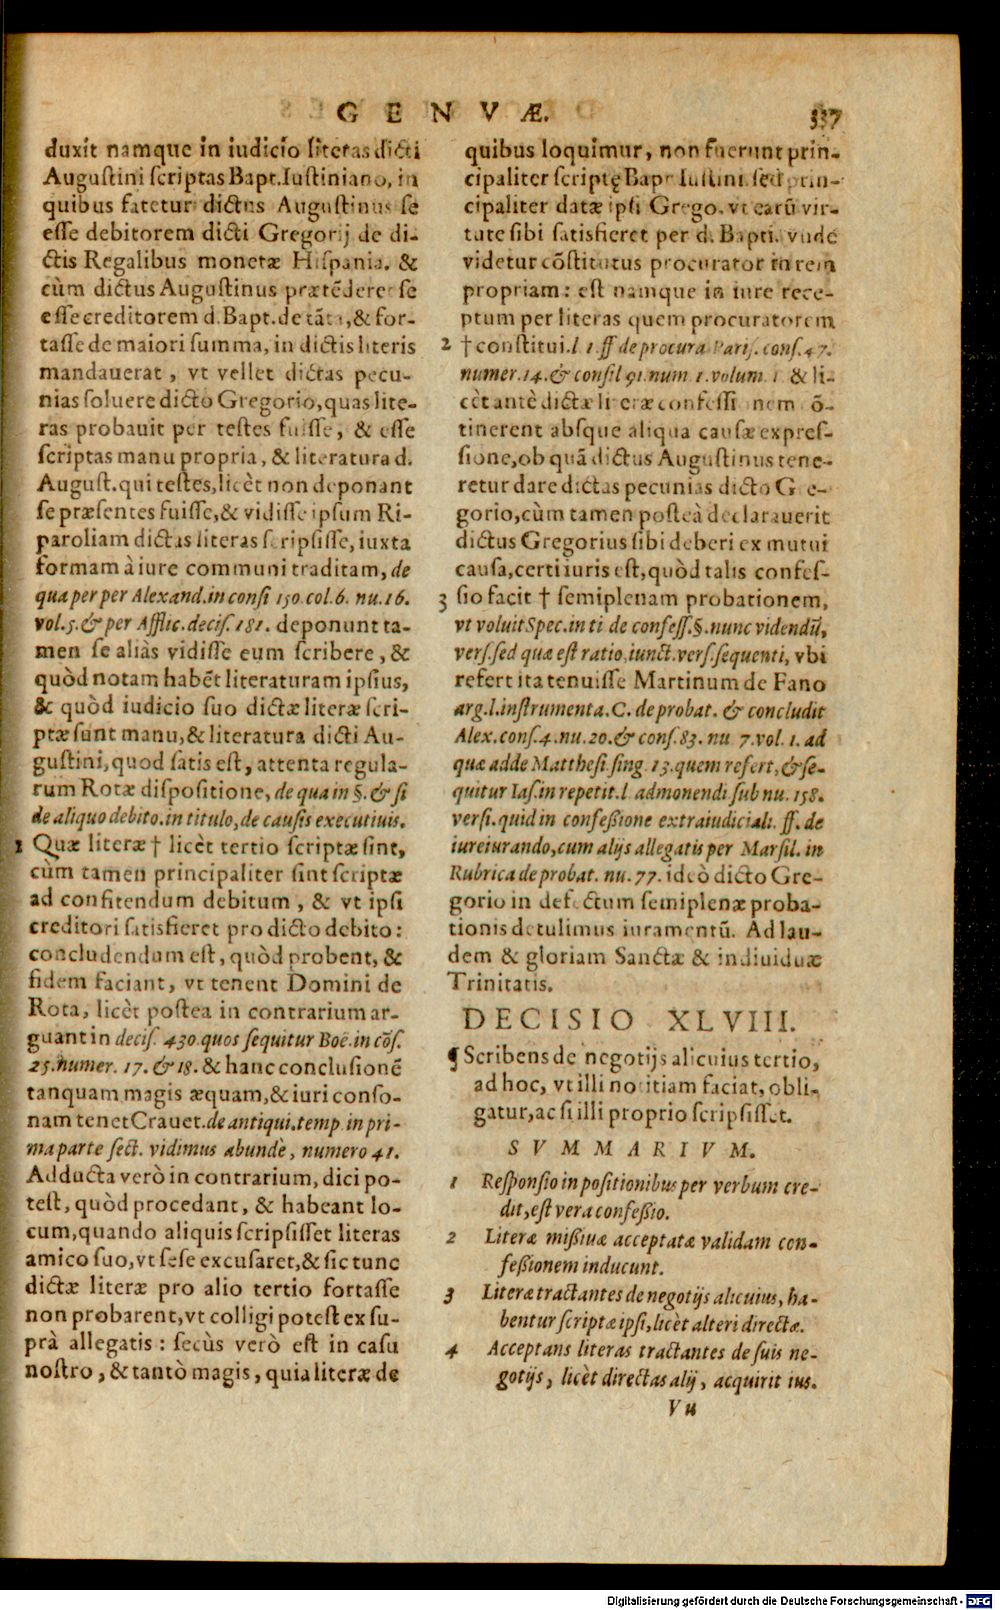 GENVÆ.
337
duxit namque in iudicio literas dicti
Augustini scriptas Bapt. Iustiniano, in
quibus fatetur dictus Augustinus se
esse debitorem dicti Gregorij de di-
ctis Regalibus monetæ Hispania. &
cùm dictus Augustinus prætēderet se
esse creditorem d. Bapt. de tāta, & for-
tasse de maiori summa, in dictis literis
mandauerat, vt vellet dictas pecu-
nias soluere dicto Gregorio, quas lite-
ras probauit per testes fuisse, & esse
scriptas manu propria, & literatura d.
August. qui testes, licèt non deponant
se præsentes fuisse, & vidisse ipsum Ri-
paroliam dictas literas scripsisse, iuxta
formam à iure communi traditam, de
qua per per Alexand. in consi 150. col. 6. nu. 16.
vol. 5. & per Afflic. decis. 181. deponunt ta-
men se aliàs vidisse eum scribere, &
quòd notam habēt literaturam ipsius,
& quòd iudicio suo dictæ literæ scri-
ptæ sunt manu, & literatura dicti Au-
gustini, quod satis est, attenta regula-
rum Rotæ dispositione, de qua in §. & si
de aliquo debito. in titulo, de causis executiuis.
1 Quæ literæ † licèt tertio scriptæ sint,
cùm tamen principaliter sint scriptæ
ad confitendum debitum, & vt ipsi
creditori satisfieret pro dicto debito:
concludendum est, quòd probent, &
fidem faciant, vt tenent Domini de
Rota, licèt postea in contrarium ar-
guant in decis. 430. quos sequitur Boë. in cōs.
25. numer. 17. & 18. & hanc conclusionē
tanquam magis æquam, & iuri conso-
nam tenet Crauet. de antiqui. temp. in pri-
ma parte sect. vidimus abundè, numero 41.
Adducta verò in contrarium, dici po-
test, quòd procedant, & habeant lo-
cum, quando aliquis scripsisset literas
amico suo, vt sese excusaret, & sic tunc
dictæ literæ pro alio tertio fortasse
non probarent, vt colligi potest ex su-
prà allegatis: secùs verò est in casu
nostro, & tantò magis, quia literæ de
quibus loquimur, non fuerunt prin-
cipaliter scriptę Bapt Iustini. sed prin-
cipaliter datæ ipsi Grego. vt earū vir-
tute sibi satisfieret per d. Bapti. vnde
videtur cōstitutus procurator in rem
propriam: est namque in iure rece-
ptum per literas quem procuratorem
2 † constitui. l 1. ff de procura Paris. cons. 47.
numer. 14. & consil 91. num 1. volum 1 & li-
cèt antè dictæ literæ confessi nem ō-
tinerent absque aliqua causæ expres-
sione, ob quā dictus Augustinus tene-
retur dare dictas pecunias dicto Gre-
gorio, cùm tamen posteà declarauerit
dictus Gregorius sibi deberi ex mutui
causa, certi iuris est, quòd talis confes-
3 sio facit † semiplenam probationem,
vt voluit Spec. in ti de confess. §. nunc videndū,
vers. sed quæ est ratio, iunct. vers. sequenti, vbi
refert ita tenuisse Martinum de Fano
arg. l. instrumenta. C. de probat. & concludit
Alex. cons. 4. nu. 20. & cons. 83. nu 7. vol. 1. ad
quæ adde Matthesi. sing. 13. quem refert, & se-
quitur Ias. in repetit. l. admonendi sub nu. 158.
versi. quid in confeßione extraiudiciali. ff. de
iureiurando, cum alijs allegatis per Marsil. in
Rubrica de probat. nu. 77. ideò dicto Gre-
gorio in defectum semiplenæ proba-
tionis detulimus iuramentū. Ad lau-
dem & gloriam Sanctæ & indiuiduæ
Trinitatis.
DECISIO XLVIII.
¶ Scribens de negotijs alicuius tertio,
ad hoc, vt illi notitiam faciat, obli-
gatur, ac si illi proprio scripsisset.
SVMMARIVM.
1 Responsio in positionibus per verbum cre-
dit, est vera confeßio.
2 Literæ mißiuæ acceptatæ validam con-
feßionem inducunt.
3 Literæ tractantes de negotijs alicuius, ha-
bentur scriptæ ipsi, licèt alteri directæ.
4 Acceptans literas tractantes de suis ne-
gotijs, licèt directas alij, acquirit ius.
Vu
Digitalisierung gefördert durch die Deutsche Forschungsgemeinschaft - DFG